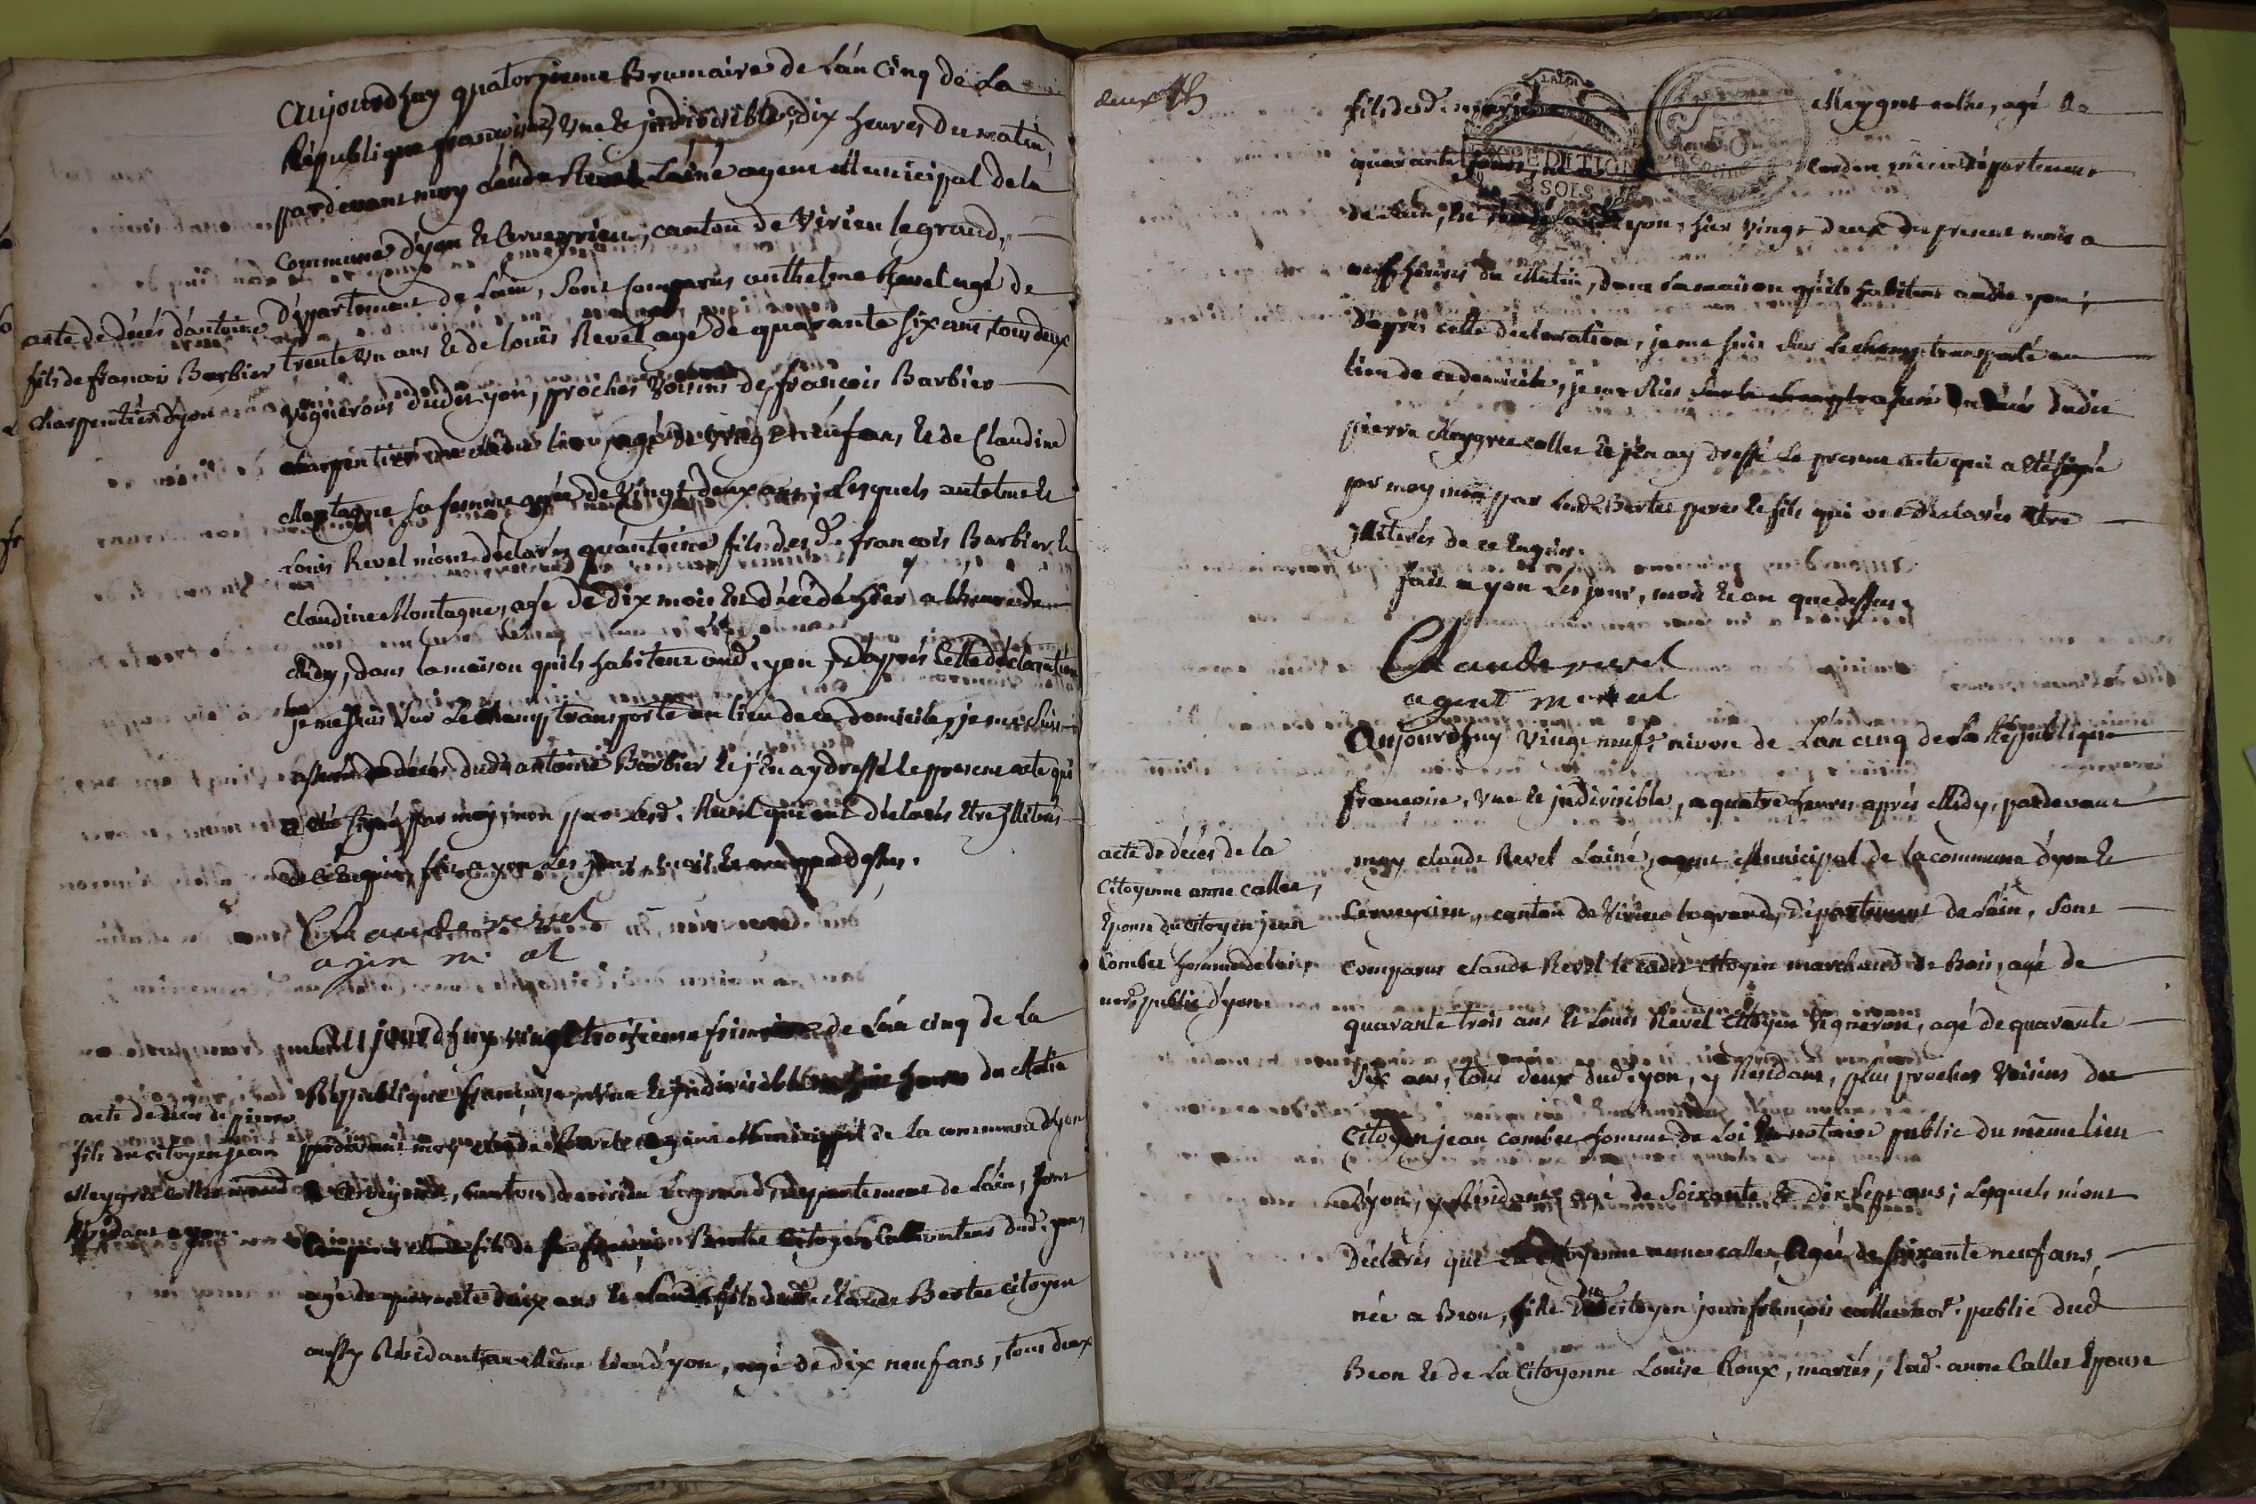 Aujourdhuy quatorzieme Brumaire de Lán Cinq de La
République francoise, Vne et jndivisible, dix heures du matin,
pardevant moy Claude Revel Láiné agent Municipal de la
Commune d'yon et Cerveyrieu, canton de Virieu le grand,
Département de Láin, Sont Comparus anthelme Revel agé de
acte de décés d'antoine
fils de francois Barbier
Charpentier d'yon
trente Vn ans et de Louis Revel agé de quarante six ans, tous deux
Vignerons dudit yon, proches Voisins de francois Barbier
charpentier du lieu, agé de vingt neuf ans, et de Claudine
Montagne sa femme agée de Vingt deux ans; Lesquels antelme et
Louis Revel m'ont déclarés qu'antoine fils desd. francois Barbier et
Claudine Montagne, agé de dix mois est décédé hier a lheure de
Midy, dans la maison qu'ils habitent aud. yon, d'apprés Cette déclaration
je me suis Sur Le champ transporté au lieu de ce domicile, je me suis
assuré du décés dudit antoine Barbier et j'en ay dressé le present acte qui
a été signé par moy, non par Lesd. Revel qui ont déclarés être jllitérés
de ce Enquis, fait a yon Les jour, mois et an que dessus.
Claude revel
agen m. al
Aujourdhuy vingt troizieme frimaire de Lán cinq de La
République francoise, vne et jndivisible heures du Matin
acte de décés de pierre
fils du citoyen jean
Meygret collet
Résidant a yon
pardevant moy Claude Revel agent Municipal de la commune d'yon
et Cerveyrieu, canton de virieu Legrand, département de Láin, sont
Comparus fils de Bertet Citoyen Cultivateur dud. yon,
agé de quarante deux ans et Claude fils dud. Claude Bertet citoyen
aussy Résidant au Même lieu d'yon, agé de dix neuf ans, tous deux
deux
fils desd. Meygret collet, agé de
quarante jours, né Cerdon même département
de Láin, yon, hier vingt deux du present mois a
neuf heures du Matin, dans la maison qu'ils habitent audit yon;
D'apprés cette déclaration, je me suis Sur Le champ transporté au
lieu de ce domicile, je me suis du décés dudit
pierre Meygret collet et j'en ay dressé Le present acte qui a été signé
par moy, non par Lesd. Bertet peres et fils qui ont déclarés être
jllitérés de ce Enquis.
fait a yon Les jour, mois et an que dessus.
Claude revel
agent m al
Aujourdhuy Vingt neuf nivose de Lán cinq de La République
françoise, vne et jndivisible, a quatre heures aprés Midy, pardevant
moy claude Revel Láiné, agent Municipal de la commune d'yon et
acte de décés de la
Citoyenne anne callet,
Epouse du citoyen jean
Combet homme de loi,
nore. public d'yon
Cerveyrieu, canton de Virieu le grand, département de Láin, Sont
Comparus claude Revel le cadet citoyen marchand de Bois, agé de
quarante trois ans et Louis Revel Citoyen Vigneron, agé de quarante
Six ans, tous deux dud. yon, y Résidant, plus proches Voisins du
Citoyen jean combet homme de Loi et notaire public du même lieu
d'yon, y Résidant, agé de Soixante et dix Sept ans; Lesquels m'ont
Déclarés que La Citoyenne anne callet, agée de soixante neuf ans,
née a Beon, fille du citoyen jean françois callet nor. public dud
Beon et de La Citoyenne Louise Roux, mariés, lad. anne Callet Epouse